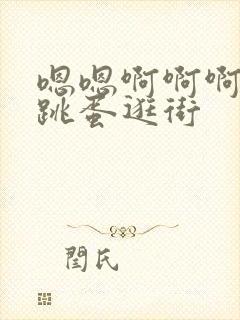 嗯嗯啊啊啊
跳蛋逛街
閆氏